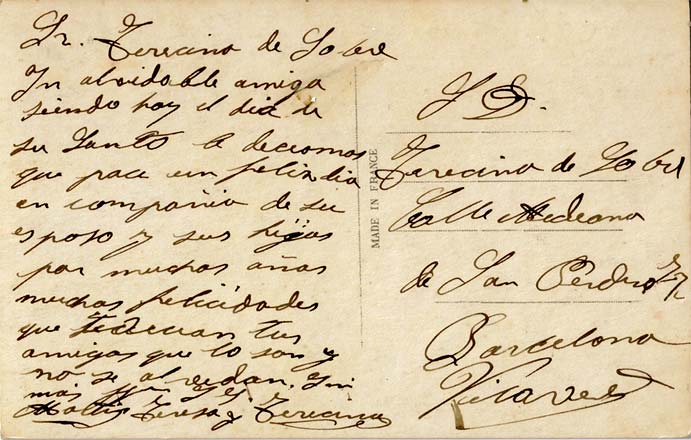 Sr. Terecina de Sobre
In alvidable amiga
siendo hoy el dia de
su Santo le deciamos
que pace un felix dia
en compañia de su
esposo y sus hijos
por muchos años
muchas felicidades
que tedecian tus
amigas que lo son y
no se alvidan.
mas
Teresa y Terecina
MADE IN FRANCE
S D.
Terecina de Sobre
Calle Medeana
de San Perdro 52
Barcelona